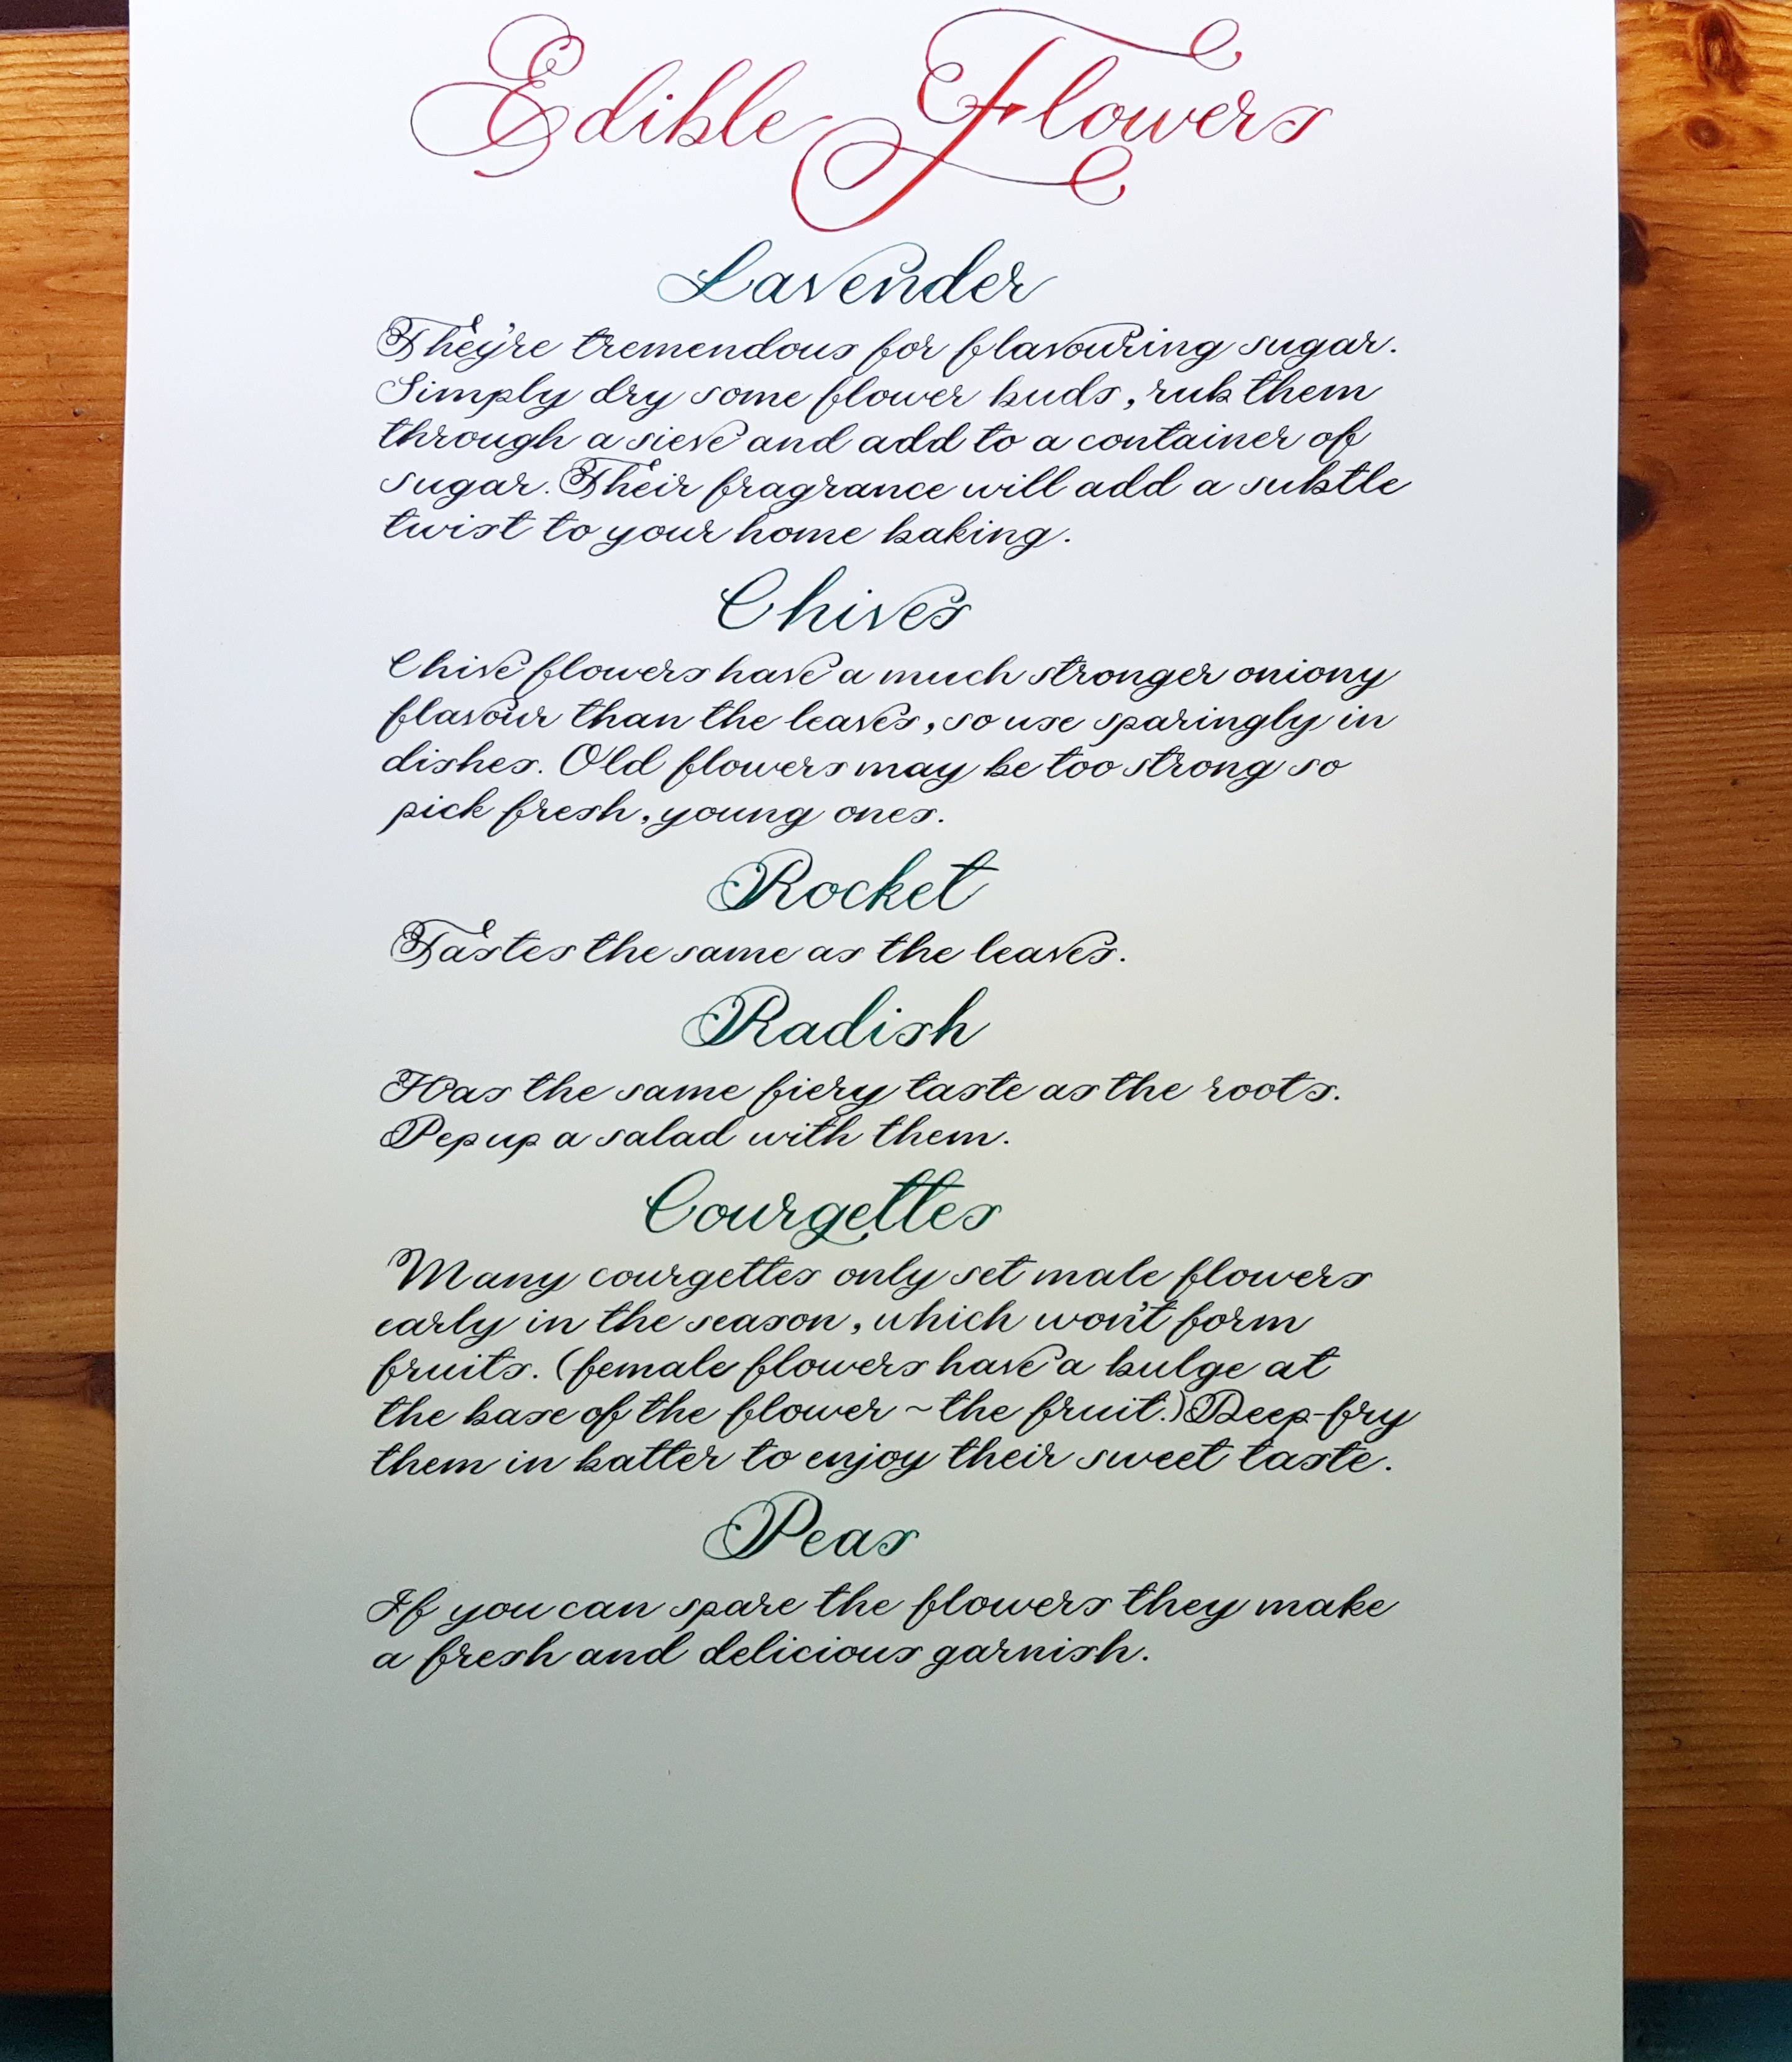 Edible Flowers
Lavender
They're tremendous for flavouring sugar.
Simply dry some flower buds, rub them
through a sieve and add to a container of
sugar. Their fragrance will add a subtle
twist to your home baking.
Chives
Chive flowers have a much stronger oniony
flavour than the leaves, so use sparingly in
dishes. Old flowers may be too strong so
pick fresh, young ones.
Rocket
Tastes the same as the leaves.
Radish
Has the same fiery taste as the roots.
Pep up a salad with them.
Courgettes
Many courgettes only set male flowers
early in the season, which won't form
fruits. (female flowers have a bulge at
the base of the flower ~ the fruit.) Deep-fry
them in batter to enjoy their sweet taste.
Peas
If you can spare the flowers they make
a fresh and delicious garnish.